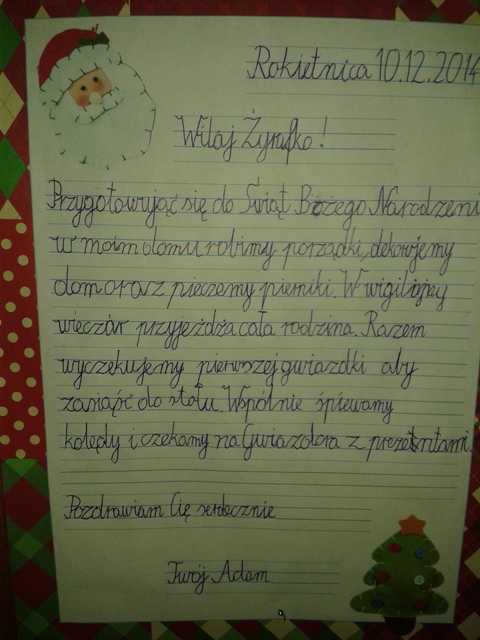 Rokietnica 10.12.2014
Witaj Żyrafko!
Przygotowując się do Świąt Bożego Narodzeni
w moim domu robimy porządki, dekorujemy
dom oraz pieczemy pierniki. W wigilijny
wieczór przyjeżdża cała rodzina. Razem
wyczekujemy pierwszej gwiazdki aby
zasiąść do stołu. Wspólnie śpiewamy
kolędy i czekamy na Gwiazdora z prezentami.
Pozdrawiam Cię serdecznie
Twój Adam